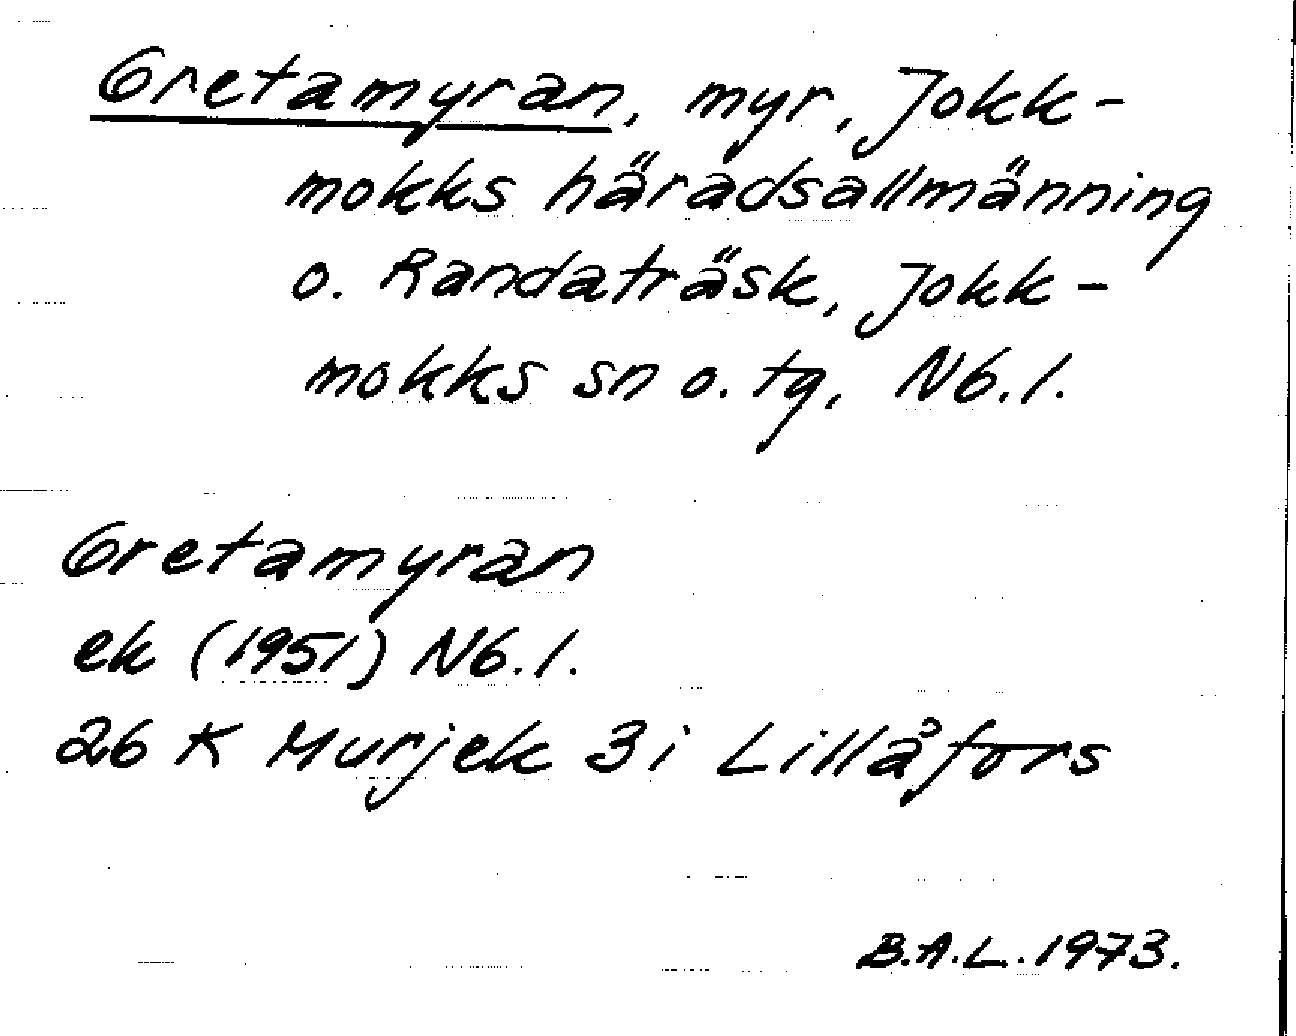 Gretamyran, myr, Jokk-
mokks häradsallmänning
o. Randaträsk, Jokk-
mokks sn o. tg, Nb. l.
Gretamyran
ek (1951) Nb. l.
26 K Murjek 3 i Lillåfors
B.A.L. 1973.